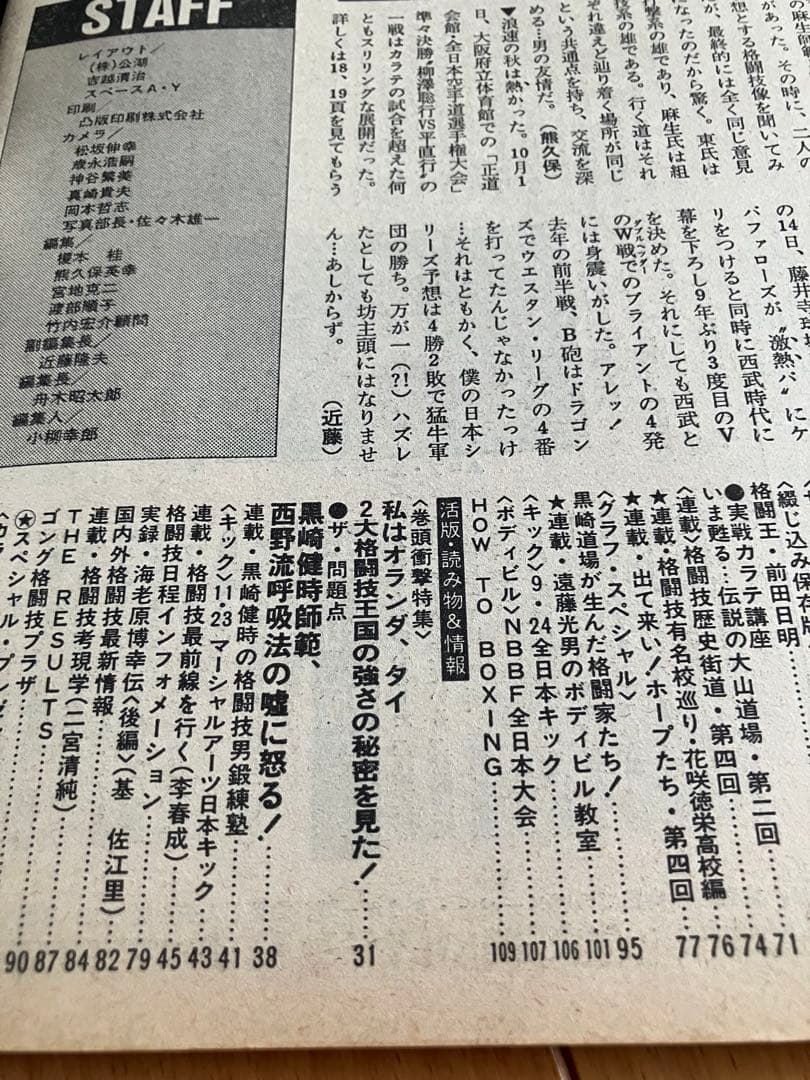 STAFF
レイアウト／
(株)公湖
吉越清治
スペースA・Y
印刷／
凸版印刷株式会社
カメラ／
松坂伸幸
歳永浩嗣
神谷繁美
真崎貴夫
岡本哲志
写真部長・佐々木雄一
編集／
榎本　桂
熊久保英幸
宮地克二
渡部順子
竹内宏介顧問
副編集長／
近藤隆夫
編集長／
舟木昭太郎
編集人／
小柳幸郎
があった。その時に、二人の
想とする格闘技像を聞いてみ
が、最終的には全く同じ意見
になったのだから驚く。東氏は
打撃系の雄であり、麻生氏は組
技系の雄である。行く道はそれ
ぞれ違えど辿り着く場所が同じ
という共通点を持ち、交流を深
める…男の友情だ。（熊久保）
▼浪速の秋は熱かった。10月1
日、大阪府立体育館での「正道
会館・全日本空手道選手権大会」
準々決勝〝柳澤聡行VS平直行〟の
一戦はカラテの試合を超えた何
ともスリリングな展開だった。
詳しくは18、19頁を見てもらう
の14日、藤井寺球場
バファローズが〝激熱パ〟にケ
リをつけると同時に西武時代に
幕を下ろし9年ぶり3度目のV
を決めた。それにしても西武と
のW戦でのブライアントの4発
ダブルヘッダー
には身震いがした。アレッ！
去年の前半戦、B砲はドラゴン
ズでウエスタン・リーグの4番
を打ってたんじゃなかったっけ
…それはともかく、僕の日本シ
リーズ予想は4勝2敗で猛牛軍
団の勝ち。万が一（?!）ハズレ
たとしても坊主頭にはなりませ
ん…あしからず。　（近藤）
〈綴じ込み保存版
格闘王・前田日明……71
●実戦カラテ講座
いま甦る…伝説の大山道場・第二回……74
〈連載〉格闘技歴史街道・第四回……76
★連載・格闘技有名校巡り・花咲徳栄高校編……77
★連載・出て来い！ホープたち・第四回
〈グラフ・スペシャル〉
黒崎道場が生んだ格闘家たち！……95
★連載・遠藤光男のボディビル教室……101
〈キック〉9・24全日本キック……106
〈ボディビル〉NBBF全日本大会……107
HOW TO BOXING……109
活版・読み物&情報
〈巻頭衝撃特集〉
私はオランダ、タイ
2大格闘技王国の強さの秘密を見た！……31
●ザ・問題点
黒崎健時師範、
西野流呼吸法の嘘に怒る！……38
連載・黒崎健時の格闘技男鍛練塾……41
〈キック〉11・23マーシャルアーツ日本キック……43
連載・格闘技最前線を行く（李春成）……45
格闘技日程インフォメーション……79
実録・海老原博幸伝〈後編〉（基　佐江里）……82
国内外格闘技最新情報……84
連載・格闘技考現学（二宮清純）……87
THE RESULTS……90
ゴング格闘技プラザ
★スペシャル・プレゼン